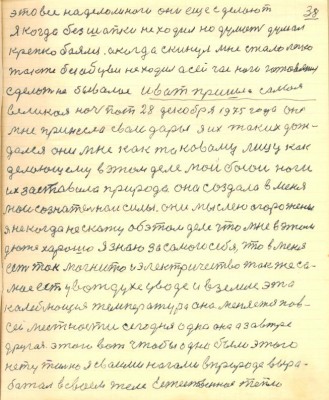 38
это все надо много они еще сделают
я когда без шапки не ходил но думать думал
крепко боялся. а когда скинул мне стало легко
также без обуви не ходил а сейчас ноги готов
сделать не бывалое И вот пришла самая
великая ночь тот 28 декабря 1975 года она
мне принесла свои дары я их таких дож-
дался они мне как таковому лицу как
делающему в этом деле мои босы ноги
их заставила природа она создала в меня
мои сознательные силы, они мыслею огорожены
я не когда не скажу об этом деле что мне в этом
деле хорошо я знаю за самого себя, что в меня
есть ток магнито и электричество так же са-
мое есть у воздухе у воде и в земле эта
калеблющея температура она меняется по в-
сей местности сегодня одна она а завтра
другая. этого вот чтобы одно было этого
нету только я своими ногами в природе выра-
ботал в своем теле Естественное тепло